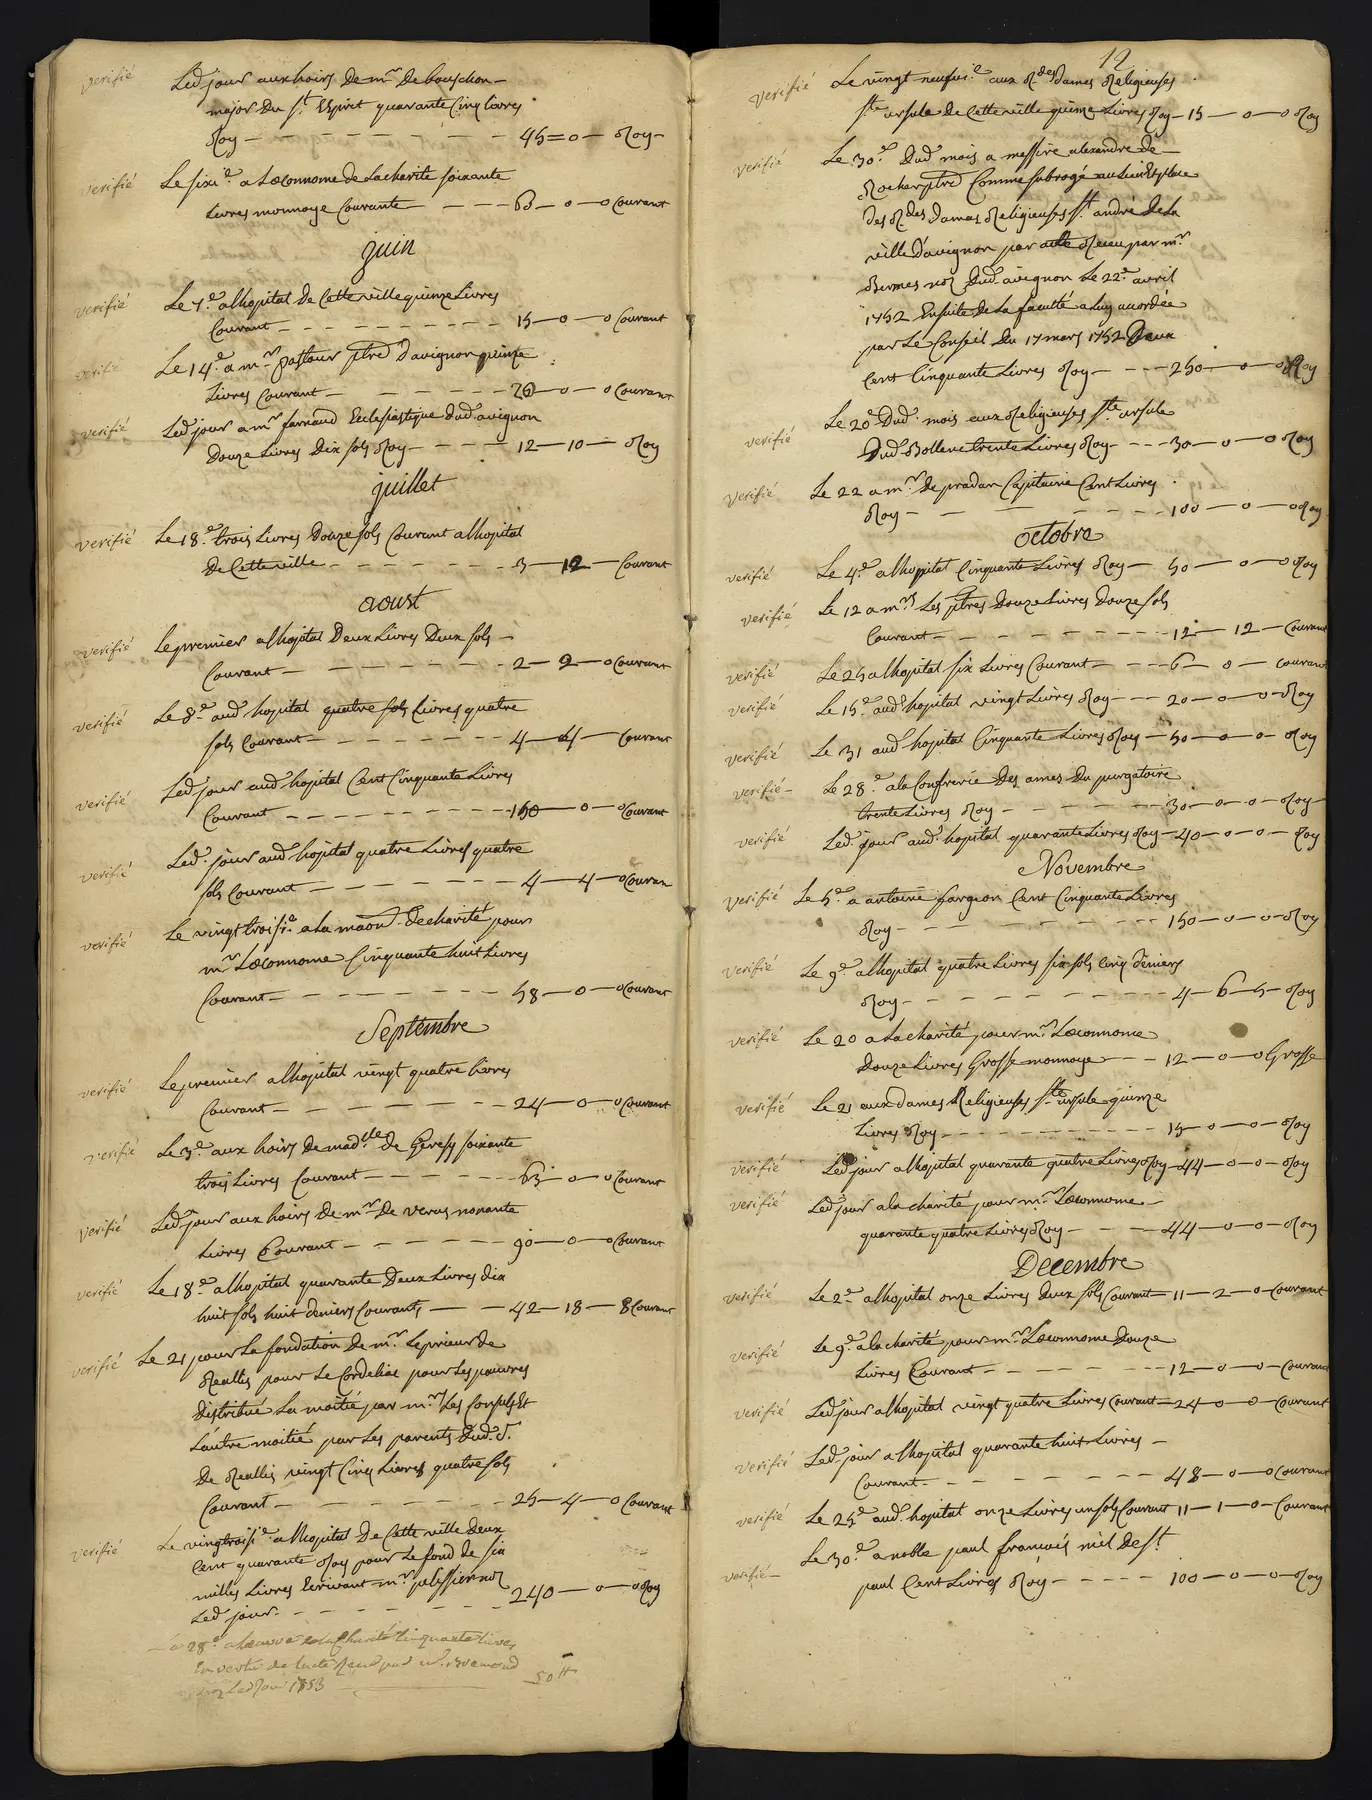 verifié Led. jour aux hoirs de mr. de bouschon
major du st. Esprit quarante cinq livres
Roy 45 = 0 Roy
verifié Le sixie. a Lœconnome de Lacharité soixante
Livres monnoye Courante 6 0 0 Courant
juin
verifié Le 7e. alhopital de Cette ville quinze Livres
Courant 15 0 0 Courant
verifié Le 14e. a mr. pastour ptre d'avignon quinze
Livres Courant 0 0 Courant
verifié Led jour a mr farnaud Ecclesiastique dud. avignon
Douze Livres Dix sols Roy 12 10 Roy
juillet
verifié Le 18e. trois Livres Douze sols Courant alhopital
de Cette ville 3 12 Courant
aoust
verifié Le premier alhopital Deux Livres Deux sols
Courant 2 2 0 Courant
verifié Le 8e. aud. hopital quatre sols Livres quatre
sols Courant 4 4 Courant
verifié Led jour aud. hopital Cent Cinquante Livres
Courant 150 0 0 Courant
verifié Led. jour aud. hopital quatre Livres quatre
sols Courant 4 4 0 Couran
verifié Le vingt troisie. a La maon. de charité pour
mr. Lœconnome Cinquante huit Livres
Courant 58 0 0 Courant
Septembre
verifié Le premier alhopital vingt quatre Livres
Courant 24 0 0 Courant
verifié Le 3e. aux hoirs de madlle de soixante
trois Livres Courant 63 0 0 Courant
verifié Led jour aux hoirs de mr. De veras nonante
Livres Courant 90 0 0 Courant
verifié Le 18e. alhopital quarante Deux Livres dix
huit sols huit deniers Courants 42 18 8 Courant
verifié Le 21 pour La fondation de mr. Le prieur de
Reallis pour Le Cordelias pour Les pauvres
Distribué La moitié par mrs. Les Consuls Et
L'autre moitié par Les parents Dud. S.
De Reallis vingt Cinq Livres quatre sols
Courant 25 4 0 Courant
verifié Le vingtroisie. alhopital De Cette ville Deux
Cent quarante Roy pour Le fond de six
milles Livres Ecrivant mr. pelissier nore
Led. jour 240 0 0 Roy
Le 28e. a Lœuvre de la Charité Cinquante Livres
En vertu de lacte par mr.
50 tt
12
verifié Le vingt neufvie. aux Rdes Dames Religieuses
ste. ursule de Cette ville quinze Livres Roy 15 0 0 Roy
verifié Le 30e. Dud. mois a messire alexandre de
Rocher ptre Comme subrogé au Lieu Et place
Des Rdes Dames Religieuses st. andré de La
ville d'avignon par acte Receu par mr.
nore Dud. avignon Le 22e. avril
1752 Ensuite de La faculté a Luy accordée
par Le Conseil Du 17 mars 1752 Deux
Cent Cinquante Livres Roy 250 0 0 Roy
verifié Le 20e Dud. mois aux Religieuses ste. ursule
Dud. Bollene trente Livres Roy 30 0 0 Roy
verifié Le 22 a mr. De pradan Capitaine Cent Livres
Roy 100 0 0 Roy
octobre
verifié Le 4e. alhopital Cinquante Livres Roy 50 0 0 Roy
verifié Le 12 a mrs Les ptres Douze Livres Douze sols
Courant 12 12 Courant
verifié Le 25 alhopital six Livres Courant 6 0 Courant
verifié Le 15e. aud. hopital vingt Livres Roy 20 0 0 Roy
verifié Le 31 aud. hopital Cinquante Livres Roy 50 0 0 Roy
verifié Le 28e. ala Confrerie Des ames Du purgatoire
trente Livres Roy 30 0 0 Roy
verifié Led. jour aud. hopital quarante Livres Roy 40 0 0 Roy
Novembre
verifié Le 5e. a antoine fargeon Cent Cinquante Livres
Roy 150 0 0 Roy
verifié Le 9e. alhopital quatre Livres six sols Cinq deniers
Roy 4 6 5 Roy
verifié Le 20 a La charité pour mr. Lœconnome
Douze Livres Grosse monnoye 12 0 0 Grosse
verifié Le 21 aux dames Religieuses ste. ursule quinze
Livres Roy 15 0 0 Roy
verifié Led jour alhopital quarante quatre Livres Roy 44 0 0 Roy
verifié Led jour ala charité pour mr. Lœconnome
quarante quatre Livres Roy 44 0 0 Roy
Decembre
verifié Le 2e. alhopital onze Livres deux sols Courant 11 2 0 Courant
verifié Le 9e. ala charité pour mr. Lœconnome Douze
Livres Courant 12 0 0 Courant
verifié Led jour alhopital vingt quatre Livres Courant 24 0 0 Courant
verifié Led. jour alhopital quarante huit Livres
Courant 48 0 0 Courant
verifié Le 25e. aud. hopital onze Livres un sols Courant 11 1 0 Courant
verifié Le 30e. a noble paul francois de st.
paul Cent Livres Roy 100 0 0 Roy